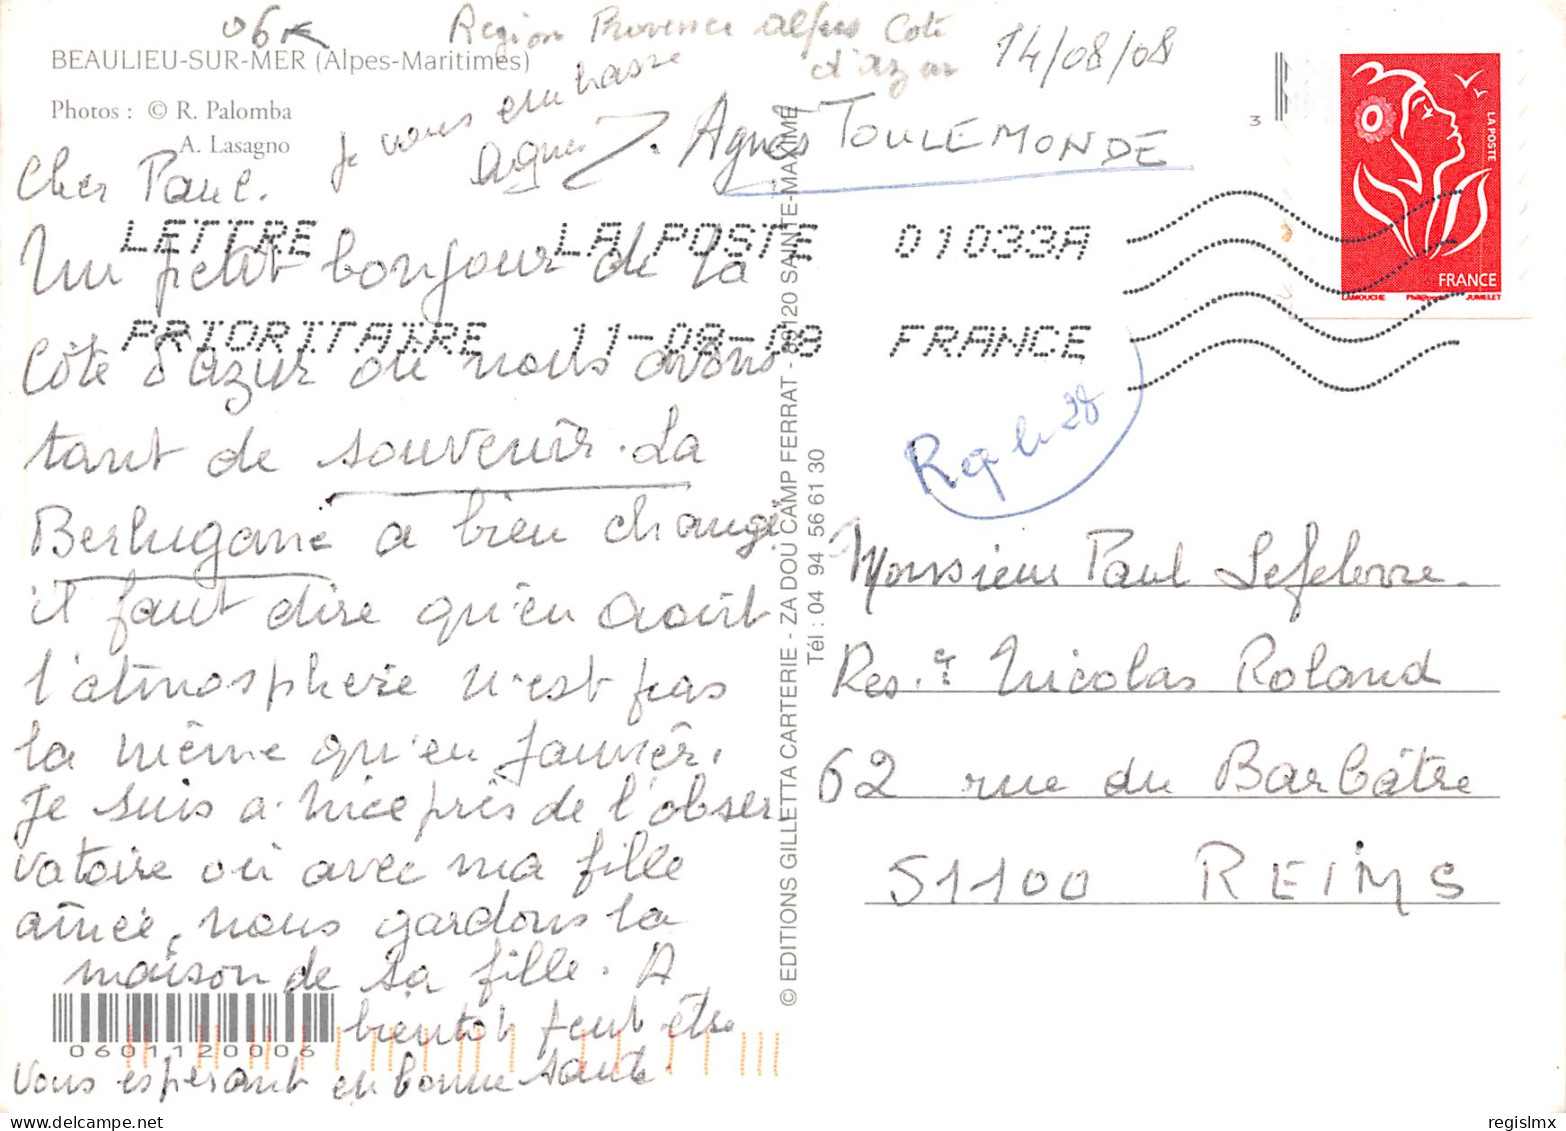 06
Region Provence alpes Cote
d'azur
14/08/08
BEAULIEU-SUR-MER (Alpes-Maritimes)
Photos : © R. Palomba
A. Lasagno
Je vous embrasse
Agnes
Agnes TOULEMONDE
3
LA POSTE
FRANCE
LAMOUCHE JUMELET
LETTRE LA POSTE 01033A
PRIORITAIRE 11-08-08 FRANCE
Cher Paul.
Un petit bonjour de la
Côte d'azur où nous avons
tant de souvenir. La
Berlugane a bien changé
il faut dire qu'en août
l'atmosphere n'est pas
la même qu'en Janvier.
Je suis a Nice près de l'obser
vatoire où avec ma fille
ainée, nous gardons la
maison de sa fille. A
bientot peut être
vous esperant en bonne santé.
0601120006
© EDITIONS GILLETTA CARTERIE - ZA DOU CAMP FERRAT - 83120 SAINTE-MAXIME
Tél : 04 94 56 61 30
Rep le 28
Monsieur Paul Lefebvre.
Res. Nicolas Roland
62 rue du Barbâtre
51100 REIMS
regislmx